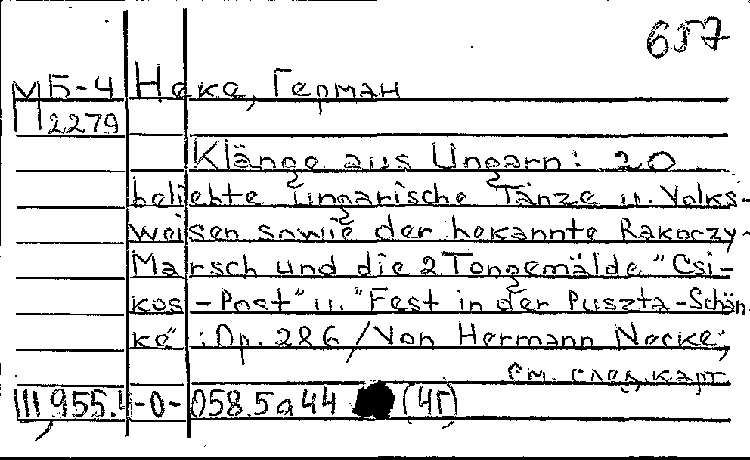 657
МБ-4 Неке, Герман
2279
Klänge aus Ungarn: 20
beliebte ungarische Tänze u. Volks-
weisen sowie der bekannte Rakoczy-
Marsch und die 2 Tongemälde "Csi-
kos-Post" u. "Fest in der Puszta-Schän
ke" : Op. 286 / Von Hermann Necke;
см. след. карт.
III 955.4-0- 058.5а44 (4Г)